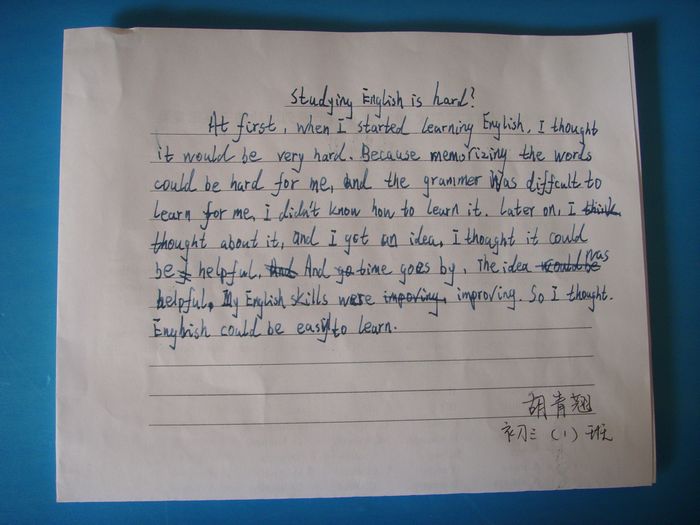 studying English is hard?
At first, when I started learning English, I thought
it would be very hard. Because memorizing the words
could be hard for me, and the grammer was diffcult to
learn for me, I didn't know how to learn it. Later on, I think
thought about it, and I got an idea, I thought it could
be helpful, And And go time goes by, The idea would be was
helpful. My English skills were improving, improving. So I thought.
English could be easy to learn.
胡青翘
初三（1）班